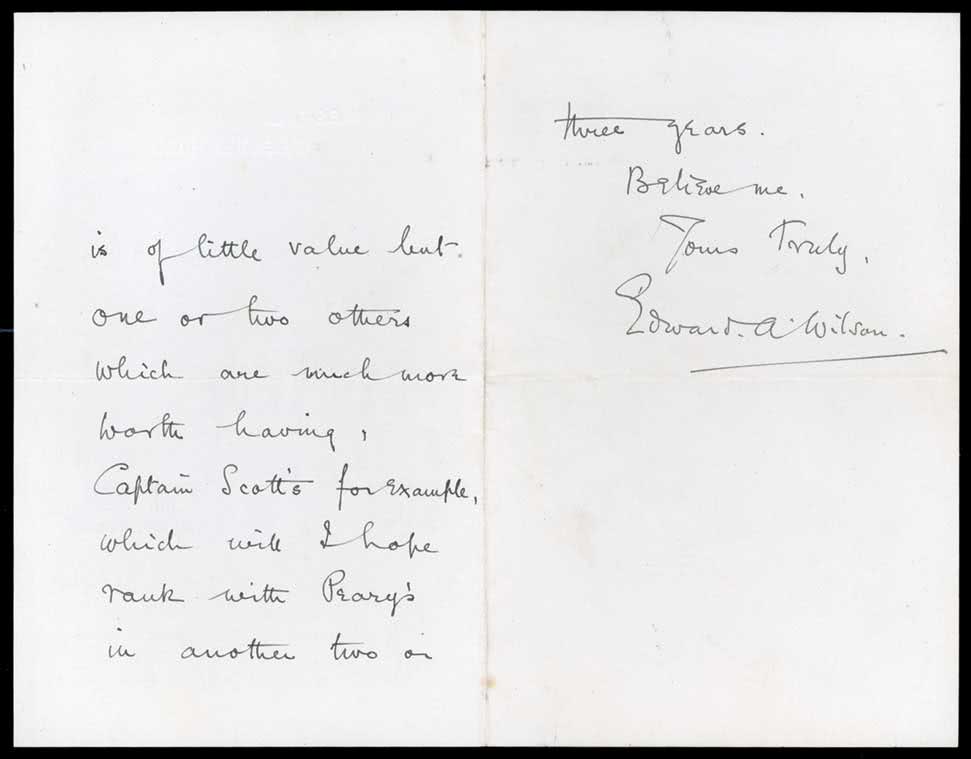 is of little value but
one or two others
which are much more
worth having,
Captain Scott's for example,
which will I hope
rank with Peary's
in another two or
three years.
Believe me.
Yours Truly,
Edward. A. Wilson.